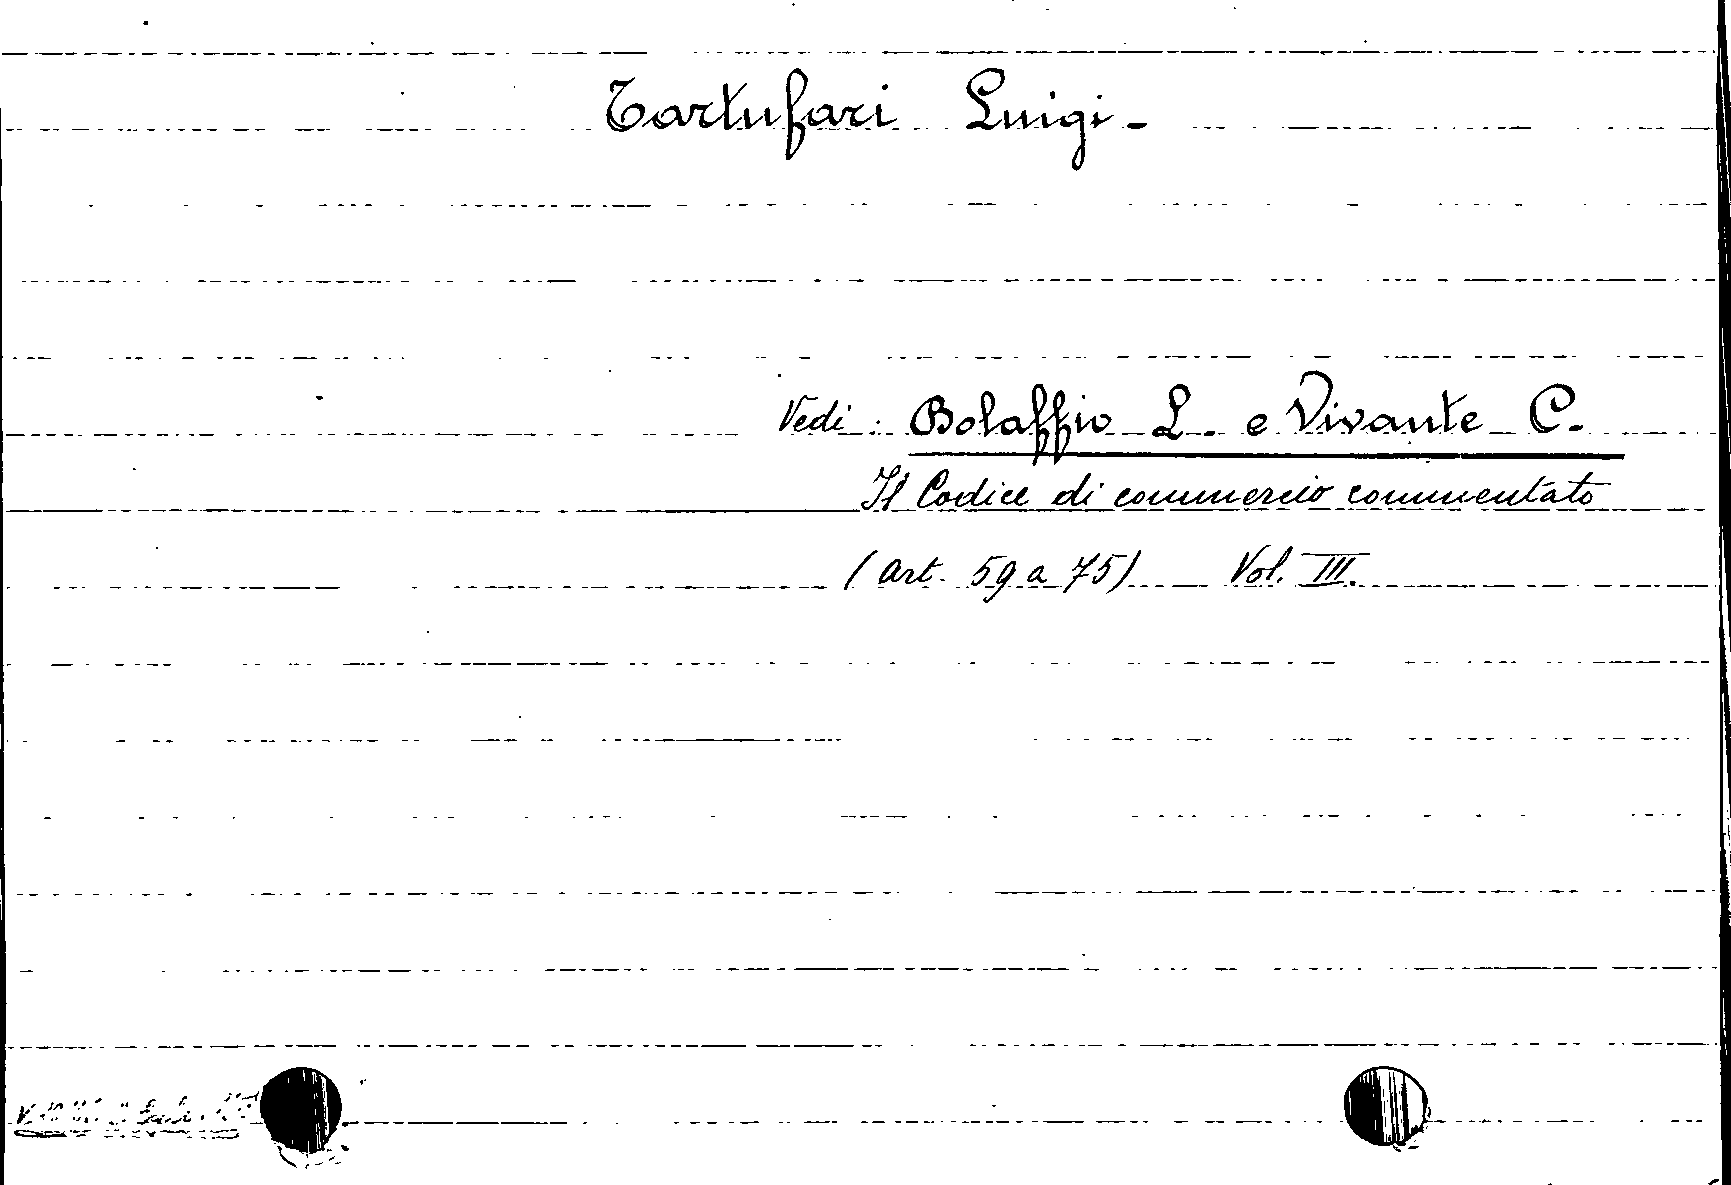 Tartufari Luigi -
Vedi : Bolaffio L. e Vivante C.
Il Codice di commercio commentato
(art. 59 a 75) Vol. III.